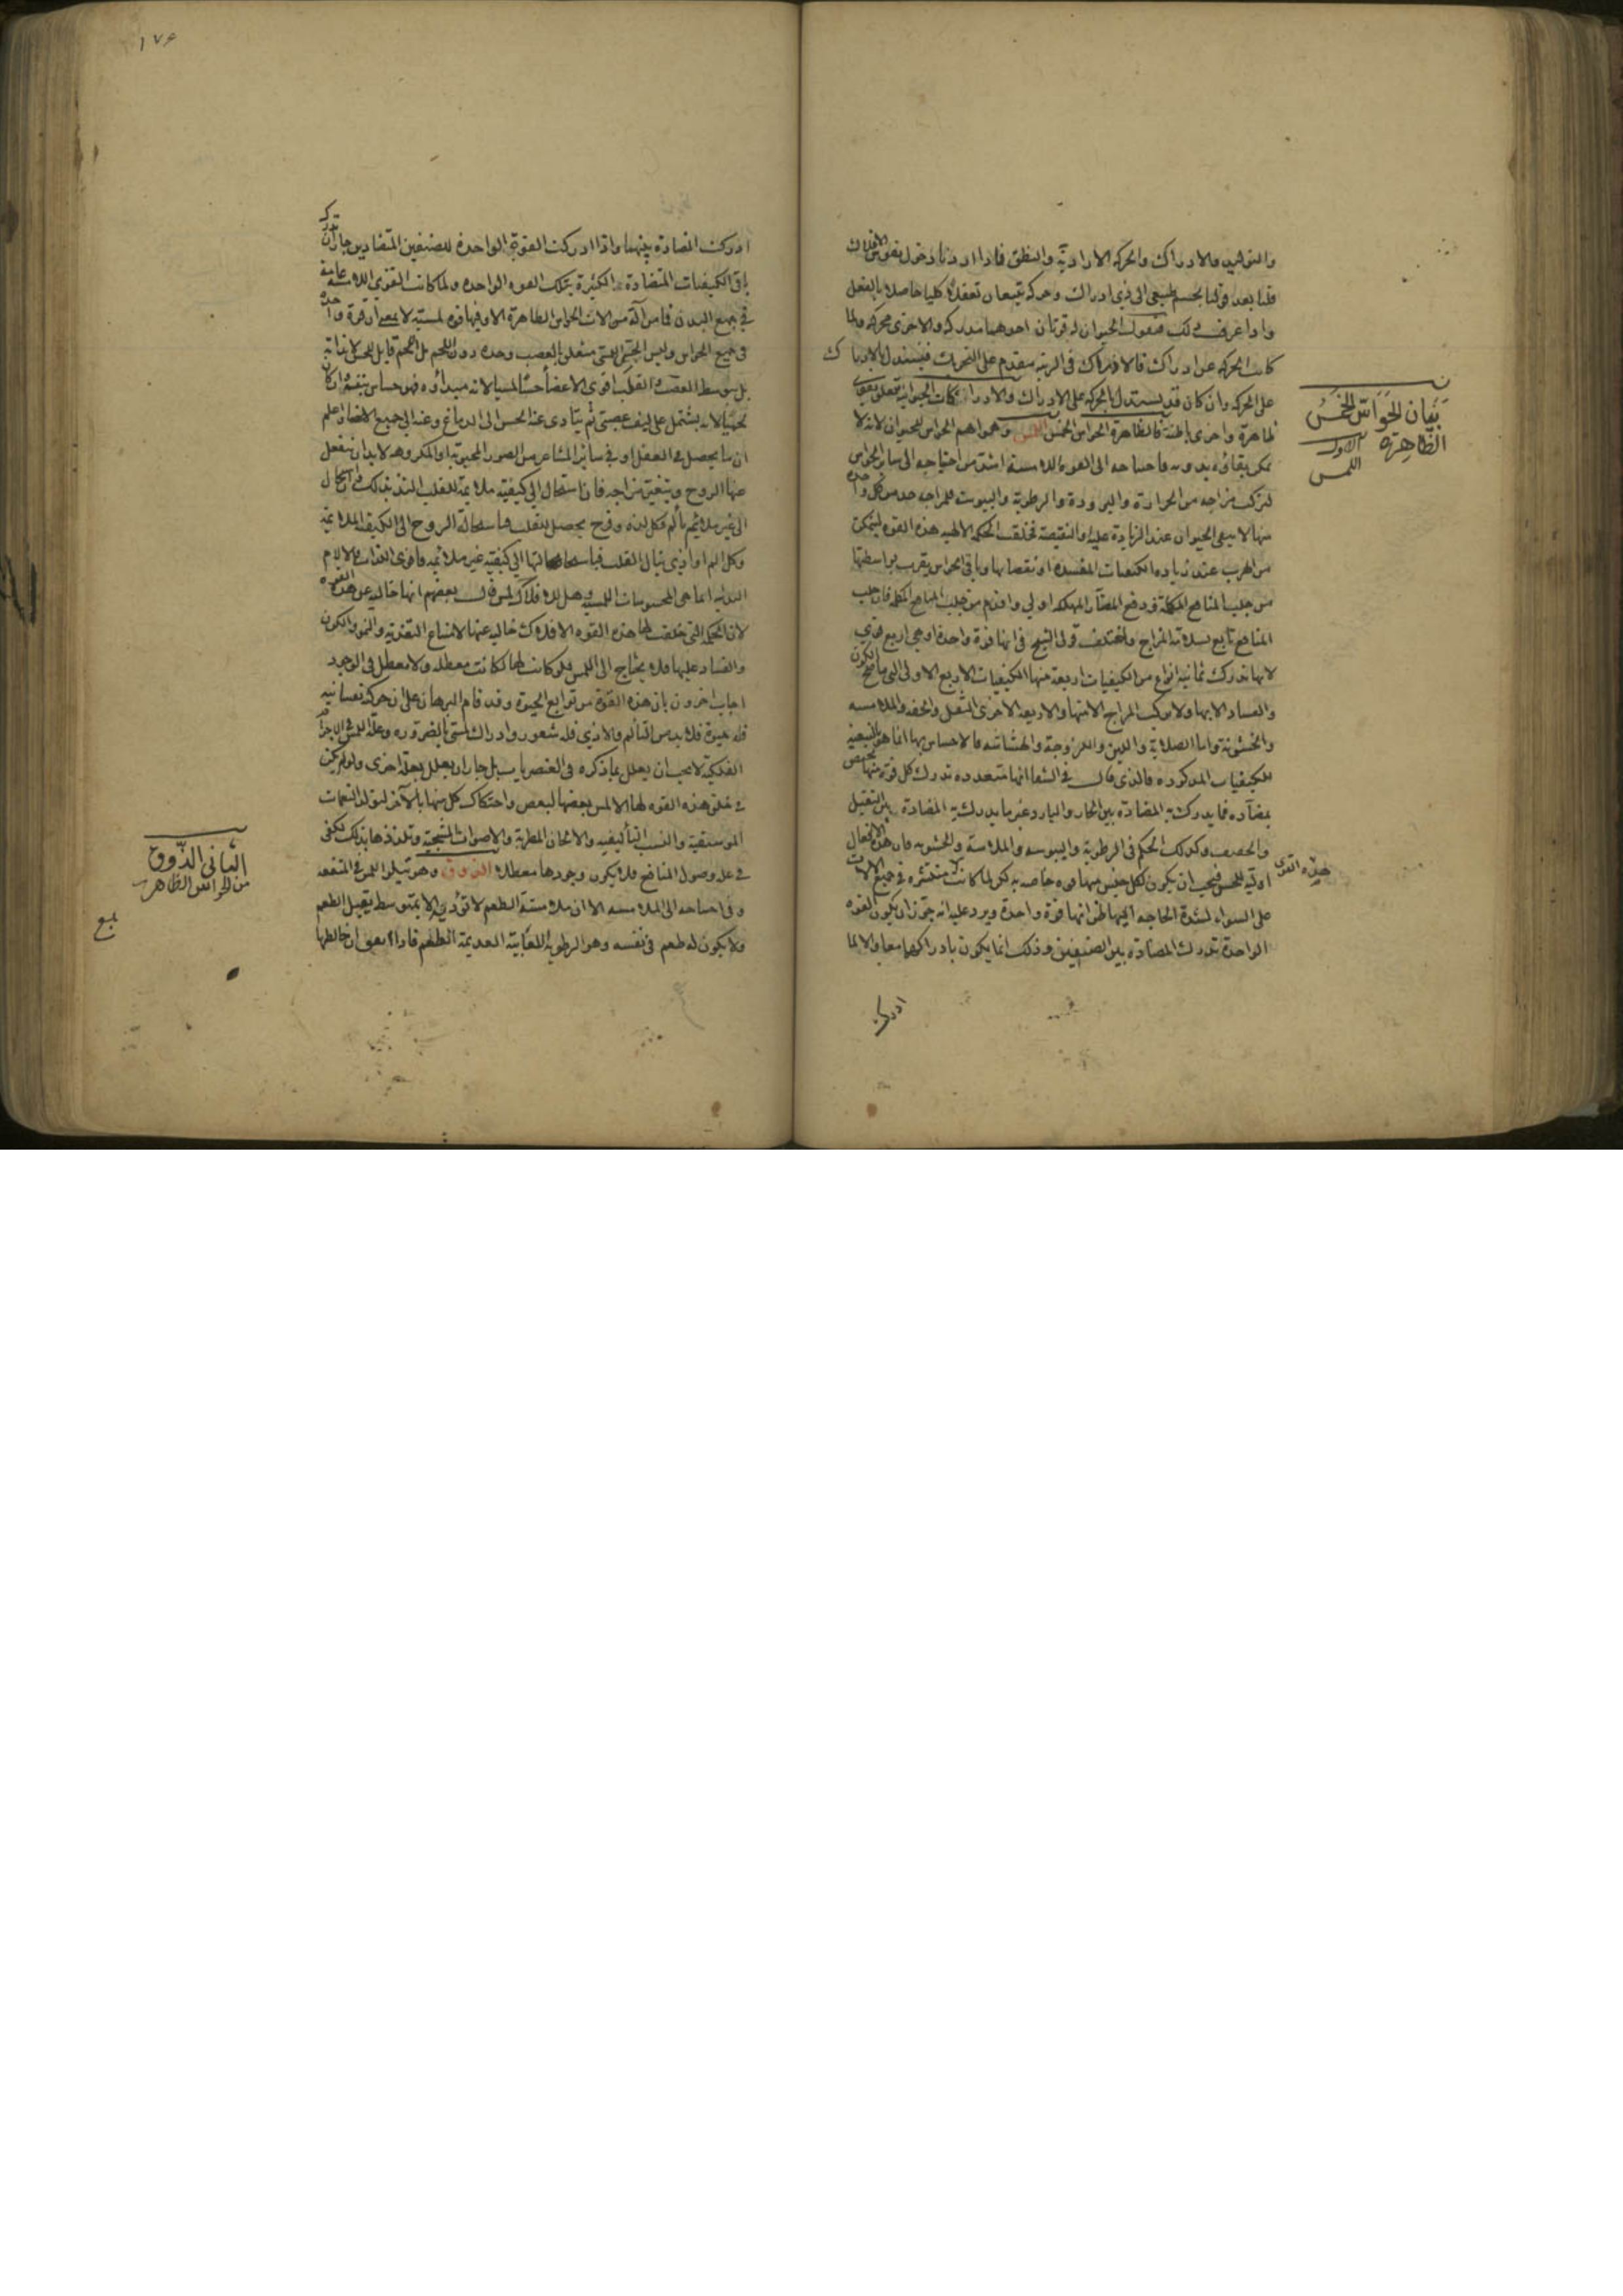 والتوليد والادراك والحركة الارادية والنطق فاذا اردنا دخول نفوس الافلاك
قلنا بعد قولنا لجسم طبيعى الى ذى ادراك وحركة تتبعان تعقلا كليا حاصلا بالفعل
واذا عرفت ذلك فنقول الحيوان له قوتان احدهما مدركة والاخرى محركة ولما
كانت الحركة عن ادراك فالادراك فى الرتبة متقدم على التحريك فيستدل بالادراك
على الحركة وان كان قد يستدل بالحركة على الادراك والادراكات الحيوانية تتعلق بقوى
ظاهرة واخرى باطنة فالظاهرة الحواس الخمس اللمس وهو اهم الحواس للحيوان لانه لا
يمكن بقاؤه بدونه فاحتياجه الى القوة اللامسة اشد من احتياجه الى سائر الحواس
لتركب مزاجه من الحرارة والبرودة والرطوبة واليبوسة فلمزاجه حد من كل واحدة
منها لا يبقى الحيوان عند الزيادة عليه او النقيصة فخلقت الحكمة الالهية هذه القوة ليتمكن
من الهرب عند زيادة الكيفيات المفسدة او نقصانها وباقى الحواس يقرب بواسطتها
من جلب المنافع المكملة ودفع المضار المهلكة اولى واقدم من جلب المنافع المكملة فان جلب
المنافع تابع لسلامة المزاج واختلف قول الشيخ فى انها قوة واحدة او هى اربع قوى
لانها تدرك ثمانية انواع من الكيفيات اربعة منها الكيفيات الاربع الاولى التى ما صح الكون
والفساد الا بها ولا تركب المزاج الا منها والاربعة الاخرى الثقل والخفة والملاسة
والخشونة واما الصلابة واللين واللزوجة والهشاشة فالاحساس بها انما هو بالتبعية
للكيفيات المذكورة فالذى قال فى الشفا انها متعددة تدرك كل قوة منها تختص
بمضادة فما يدرك به المضادة بين الحار والبارد غير ما يدرك به المضادة بين الثقيل
والخفيف وكذلك الحكم فى الرطوبة واليبوسة والملاسة والخشونة فان هذه الافعال
اولية للحس فيجب ان يكون لكل جنس منها قوة خاصة به لكن لما كانت منتشرة فى جميع الالات
على السواء لشدة الحاجة اليها ظن انها قوة واحدة ويرد عليه انه يجوز ان يكون القوة
الواحدة تدرك المضادة بين الصنفين وذلك انما يكون بادراكهما معا والا لما
ادركت
بَيَان الحَوَاسّ الخَمْسُ
الظاهِرَة الاول
اللمس
هذه القوى
١٧٤
ادركت المضادة بينهما واذا ادركت القوة الواحدة للصنفين المتضادين جاز ان تدرك
باقى الكيفيات المتضادة الكثيرة بتلك القوة الواحدة ولما كانت القوى اللامسة عامة
فى جميع البدن فما من آلة من الات الحواس الظاهرة الا وفيها قوة لمسية لا بمعنى ان قوة واحدة
فى جميع الحواس وليس الحس اللمسى متعلق بالعصب وحده دون اللحم بل اللحم قابل للحس لا بذاته
بل بتوسط العصب والقلب اقوى الاعضا حسا لمسيا لانه مبداؤه فهو حساس بنفسه وان كان
لحميا لانه يشتمل على ليف عصبى ثم يتادى عنه الحس الى الدماغ وعنه الى جميع الاعضا واعلم
ان ما يحصل فى العقل او فى سائر المشاعر من الصور المحبوبة او المكروهة لا بد ان ينفعل
عنها الروح ويتغير مزاجه فان استحال الى كيفية ملائمة للقلب التذ بذلك وان استحال
الى غير ملائم تألم فكل لذة وفرح يحصل للقلب فباستحالة الروح الى الكيفية الملائمة
وكل الم او اذى ينال القلب فباستحالتها الى كيفية غير ملائمة فاقوى اللذات والالام
البدنية انما هى المحسوسات اللمسية وهل للافلاك لمس قال بعضهم انها خالية عن هذه القوة
لان الحكمة التى خلقت لها هذه القوة الافلاك خالية عنها لامتناع التغذية والنمو والكون
والفساد عليها فلا يحتاج الى اللمس فلو كانت لها لكانت معطلة ولا معطل فى الوجود
اجاب اخرون بان هذه القوة من توابع الحيوة وقد قام البرهان على ان حركة نفسانية
فله حيوة فلا بد من التألم والاذى فله شعور وادراك لمسى بالضرورة وعلة اللمس فى الاجرام
الفلكية لا يجب ان يعلل بما ذكره فى العنصريات بل جاز ان يعلل بعلة اخرى ولو لم يكن
فى خلق هذه القوة لها الا لمس بعضها لبعض واحتكاك كل منها بالآخر لتولد النغمات
الموسيقية والنسب التأليفية والالحان المطربة والاصوات الشجية وتلذذها بذلك لكفى
فى علة وصول المنافع فلا يكون وجودها معطلا الذوق وهو تيلو اللمس فى المنفعة
وفى احتياجه الى الملامسة الا ان ملامسة الطعم لا تؤديه الا بمتوسط يقبل الطعم
ولا يكون له طعم فى نفسه وهو الرطوبة اللعابية العديمة الطعم فاذا اتفق ان خالطها
الثانى الذَّوق
من الحواس الظاهرة
بلغ